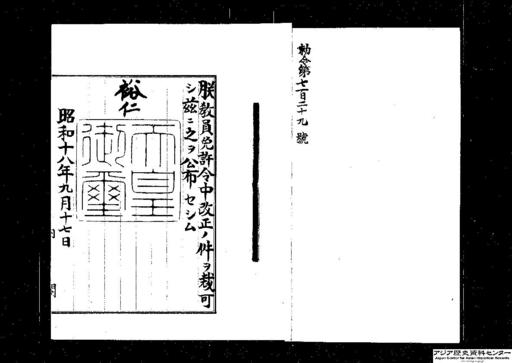 勅令第七百二十九號
朕教員免許令中改正ノ件ヲ裁可
シ茲ニ之ヲ公布セシム
裕仁
天皇
御璽
昭和十八年九月十七日
内閣
アジア歴史資料センター
Japan Center for Asian Historical Records